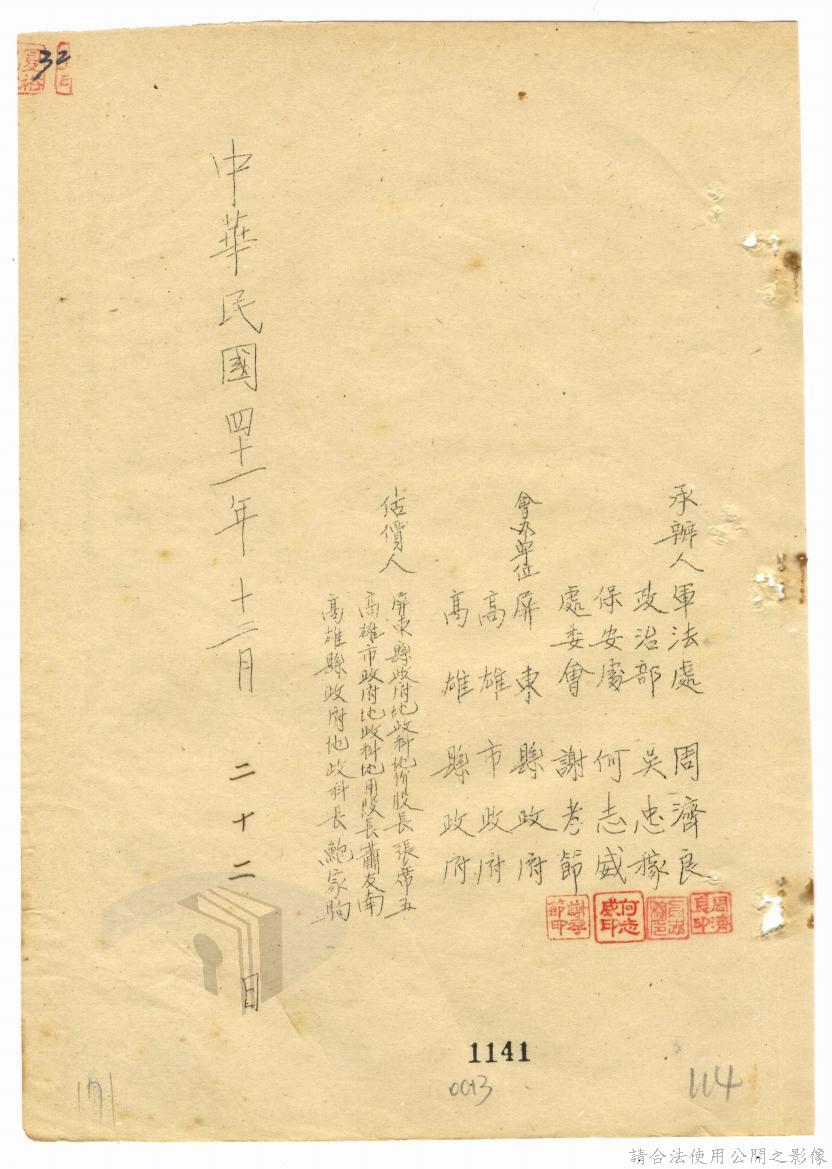 承辦人 軍法處 周濟良
政治部 吳忠稼
保安處 何志威
處委會 謝孝節
周濟良印
何志威印
謝孝節印
會办單位 屏東縣政府
高雄市政府
高雄縣政府
估價人 屏東縣政府地政科地價股長 張席五
高雄市政府地政科地用股長 蕭友南
高雄縣政府地政科長 鮑家駒
中華民國四十一年十二月二十二日
32
1141
0013
114
171
請合法使用公開之影像